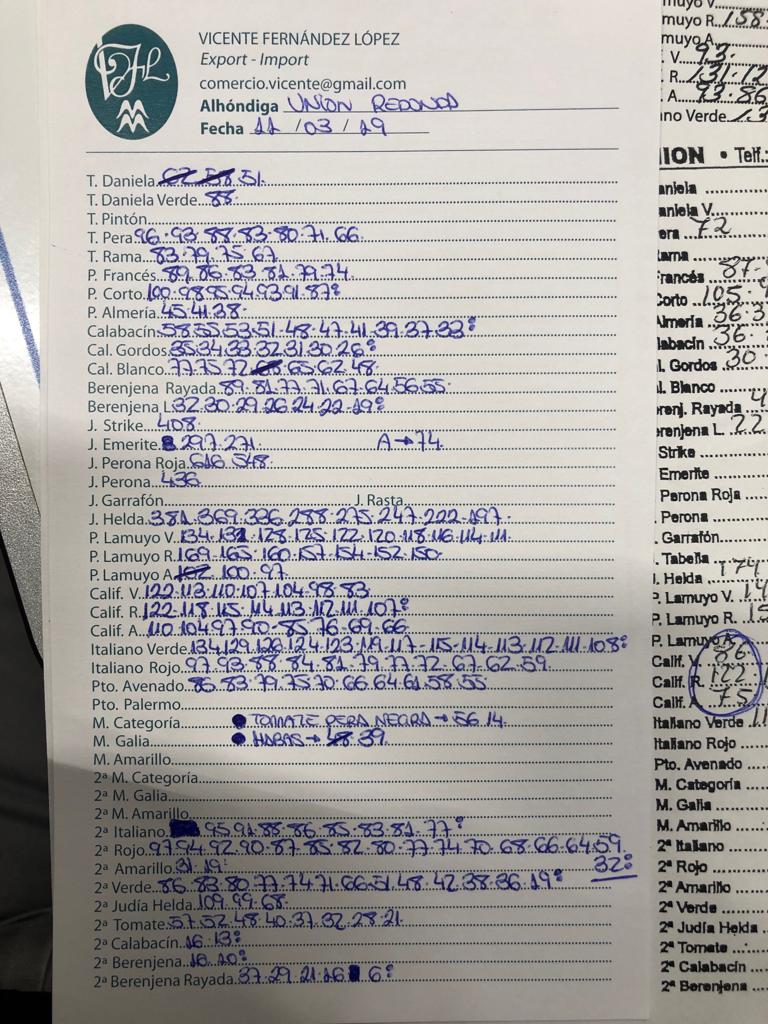 VICENTE FERNÁNDEZ LÓPEZ
Export - Import
comercio.vicente@gmail.com
Alhóndiga UNION REDONDA
Fecha 11 / 03 / 19
T. Daniela 62 58 51.
T. Daniela Verde 88.
T. Pintón
T. Pera 96.93.88.83.80.71.66.
T. Rama 83.79.75.67.
P. Francés 89.86.83.81.79.74.
P. Corto 100.98.95.94.93.91.87:
P. Almería 45.41.38.
Calabacín 58.55.53.51.48.47.41.39.37.33:
Cal. Gordos 35.34.33.32.31.30.26:
Cal. Blanco 77.75.72. 65.62.48.
Berenjena Rayada 89.81.77.71.67.64.56.55.
Berenjena L 32.30.29.26.24.22.19:
J. Strike 408.
J. Emerite 297.271. A→74.
J. Perona Roja 616 548.
J. Perona 436.
J. Garrafón J. Rasta
J. Helda 381.369.336.288.275.247.222.197.
P. Lamuyo V. 134.132.128.125.122.120.118.116.114.111.
P. Lamuyo R. 169.165.160.157.154.152.150.
P. Lamuyo A 102 100.97.
Calif. V. 122.113.110.107.104.98.83.
Calif. R. 122.118.115.114.113.112.111.107:
Calif. A. 110.104.97.90.85.76.69.66.
Italiano Verde 134.129.126.124.123.119.117.115.114.113.112.111.108:
Italiano Rojo 97.93.88.84.81.79.77.72.67.62.59.
Pto. Avenado 86.83.79.75.70.66.64.61.58.55.
Pto. Palermo
M. Categoría ● TOMATE PERA NEGRA → 56.14.
M. Galia ● HABAS → 48 39.
M. Amarillo
2ª M. Categoría
2ª M. Galia
2ª M. Amarillo
2ª Italiano 95.91.88.86.85.83.81.77:
2ª Rojo 97.94.92.90.87.85.82.80.77.74.70.68.66.64.59.
32:
2ª Amarillo 31.19:
2ª Verde 86.83.80.77.74.71.66.51.48.42.38.36.19:
2ª Judía Helda 109.99.68.
2ª Tomate 57.52.48.40.37.32.28.21.
2ª Calabacín 16.13:
2ª Berenjena 16.10:
2ª Berenjena Rayada 37.29.21.16 6:
muyo R. 158
muyo A.
V. 93.
R. 131.12
A. 93.86
ano Verde 13
ION • Telf.:
aniela
aniela V.
era 72
Rama
Francés 87.
Corto 105.
Almería 36.3
labacín 36.
l. Gordos 30
l. Blanco
renj. Rayada
erenjena L. 22
Strike
Emerite
Perona Roja
. Perona
. Garrafón
. Tabella
J. Helda 174
P. Lamuyo V.
P. Lamuyo R.
P. Lamuyo A.
Calif. V. 86
Calif. R. 122
Calif. A. 75
Italiano Verde
Italiano Rojo
Pto. Avenado
M. Categoría
M. Galia
M. Amarillo
2ª Italiano
2ª Rojo
2ª Amarillo
2ª Verde
2ª Judía Helda
2ª Tomate
2ª Calabacín
2ª Berenjena